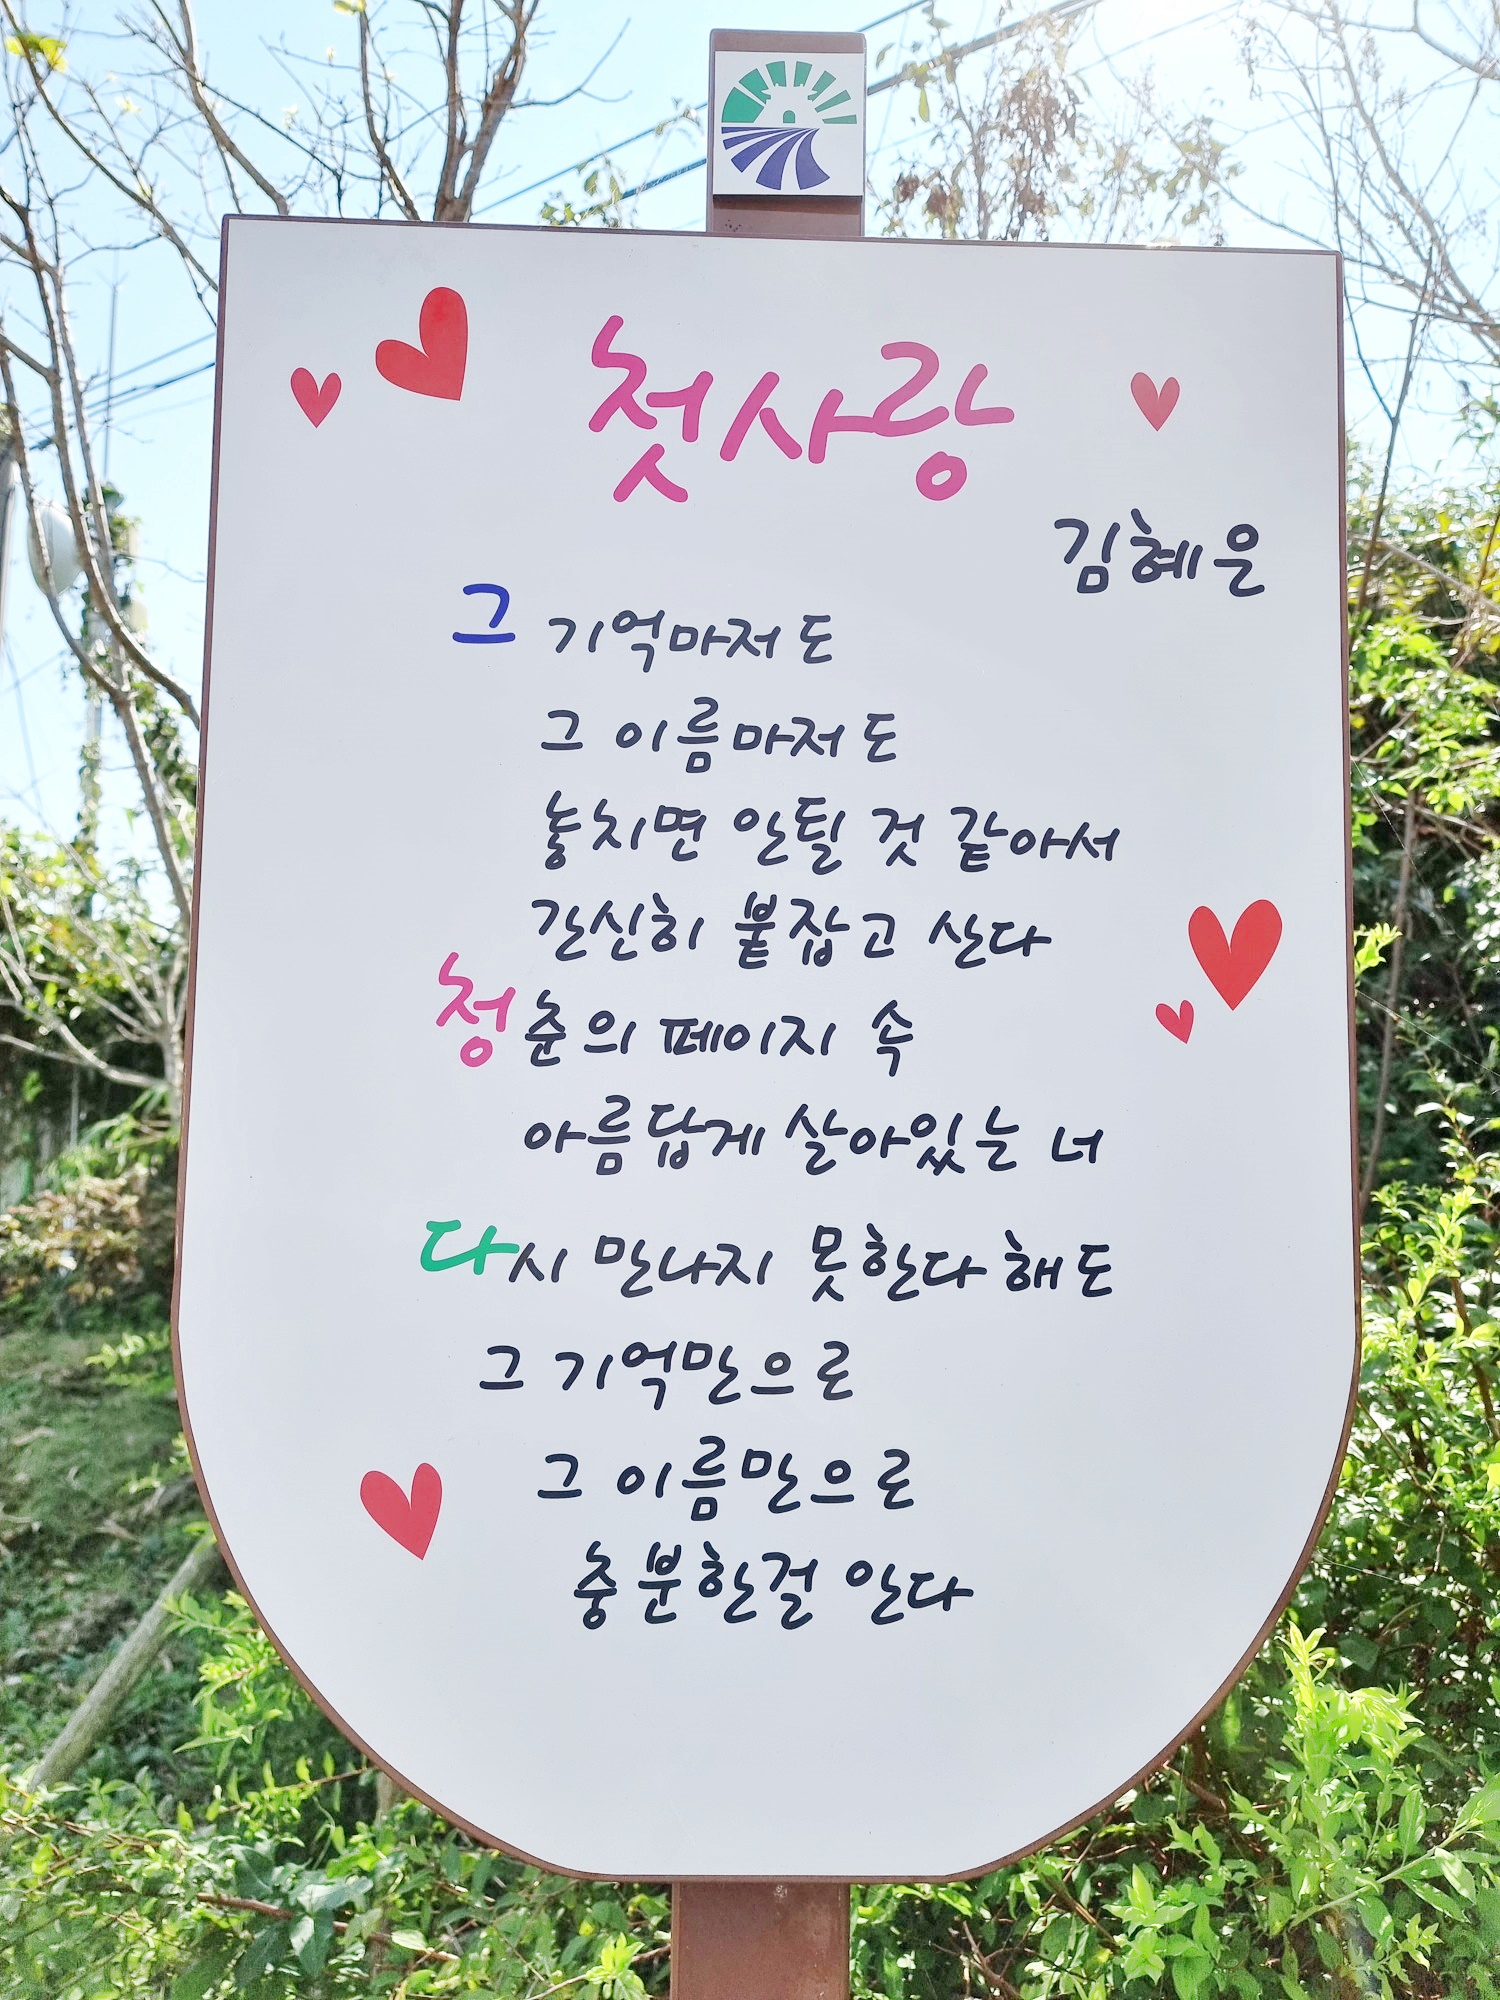 첫사랑
김혜은
그 기억마저도
그 이름마저도
놓치면 안될 것 같아서
간신히 붙잡고 산다
청춘의 페이지 속
아름답게 살아있는 너
다시 만나지 못한다 해도
그 기억만으로
그 이름만으로
충분한걸 안다